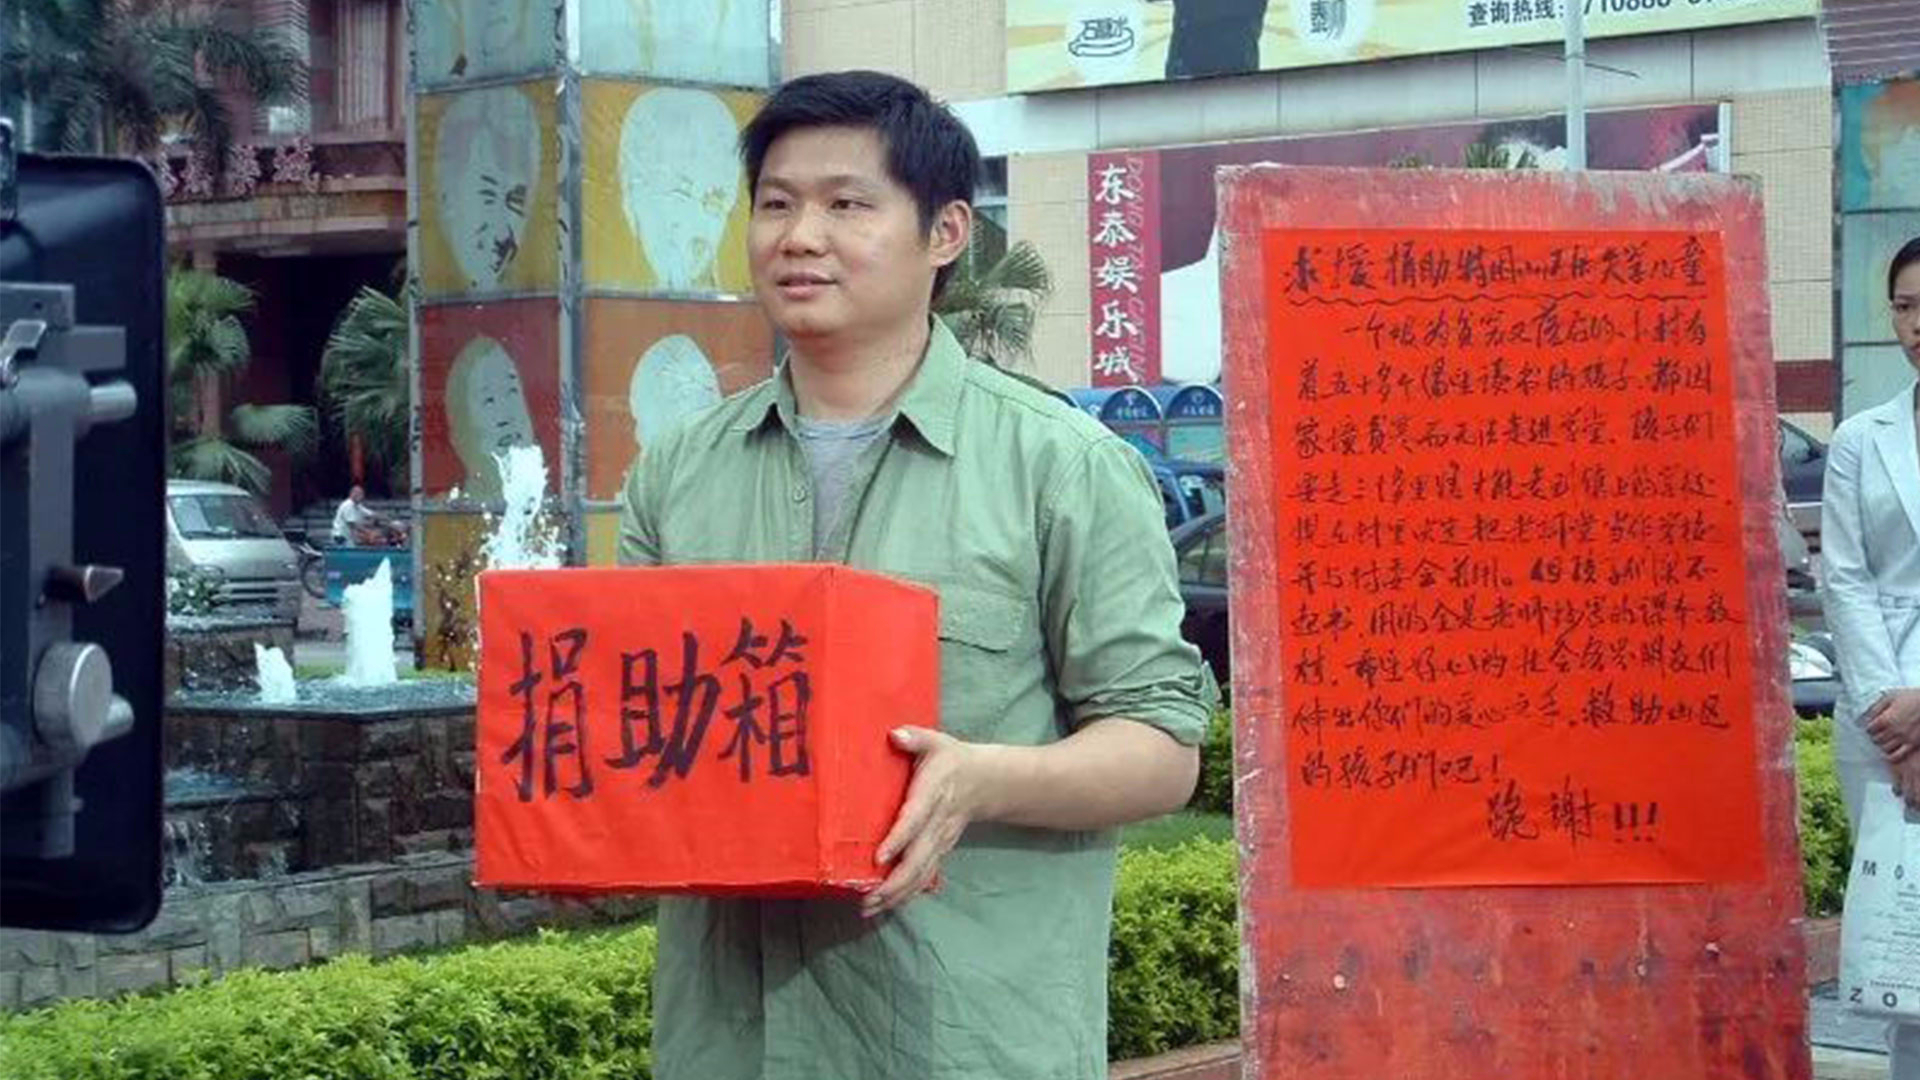 查询热线:
东泰娱乐城
捐助箱
求援捐助特困山区失学儿童
一个极为贫穷又落后的小村有
着五十多个渴望读书的孩子,都因
家境贫寒而无法走进学堂,孩子们
要走二十多里路才能走到镇上的学校,
现在村里决定把老祠堂当作学校
并与村委会兼用。但孩子们买不
起书,用的全是老师抄写的课本教
材,希望好心的社会各界朋友们
伸出你们的爱心之手,救助山区
的孩子们吧!
跪谢!!!
M O
Z O